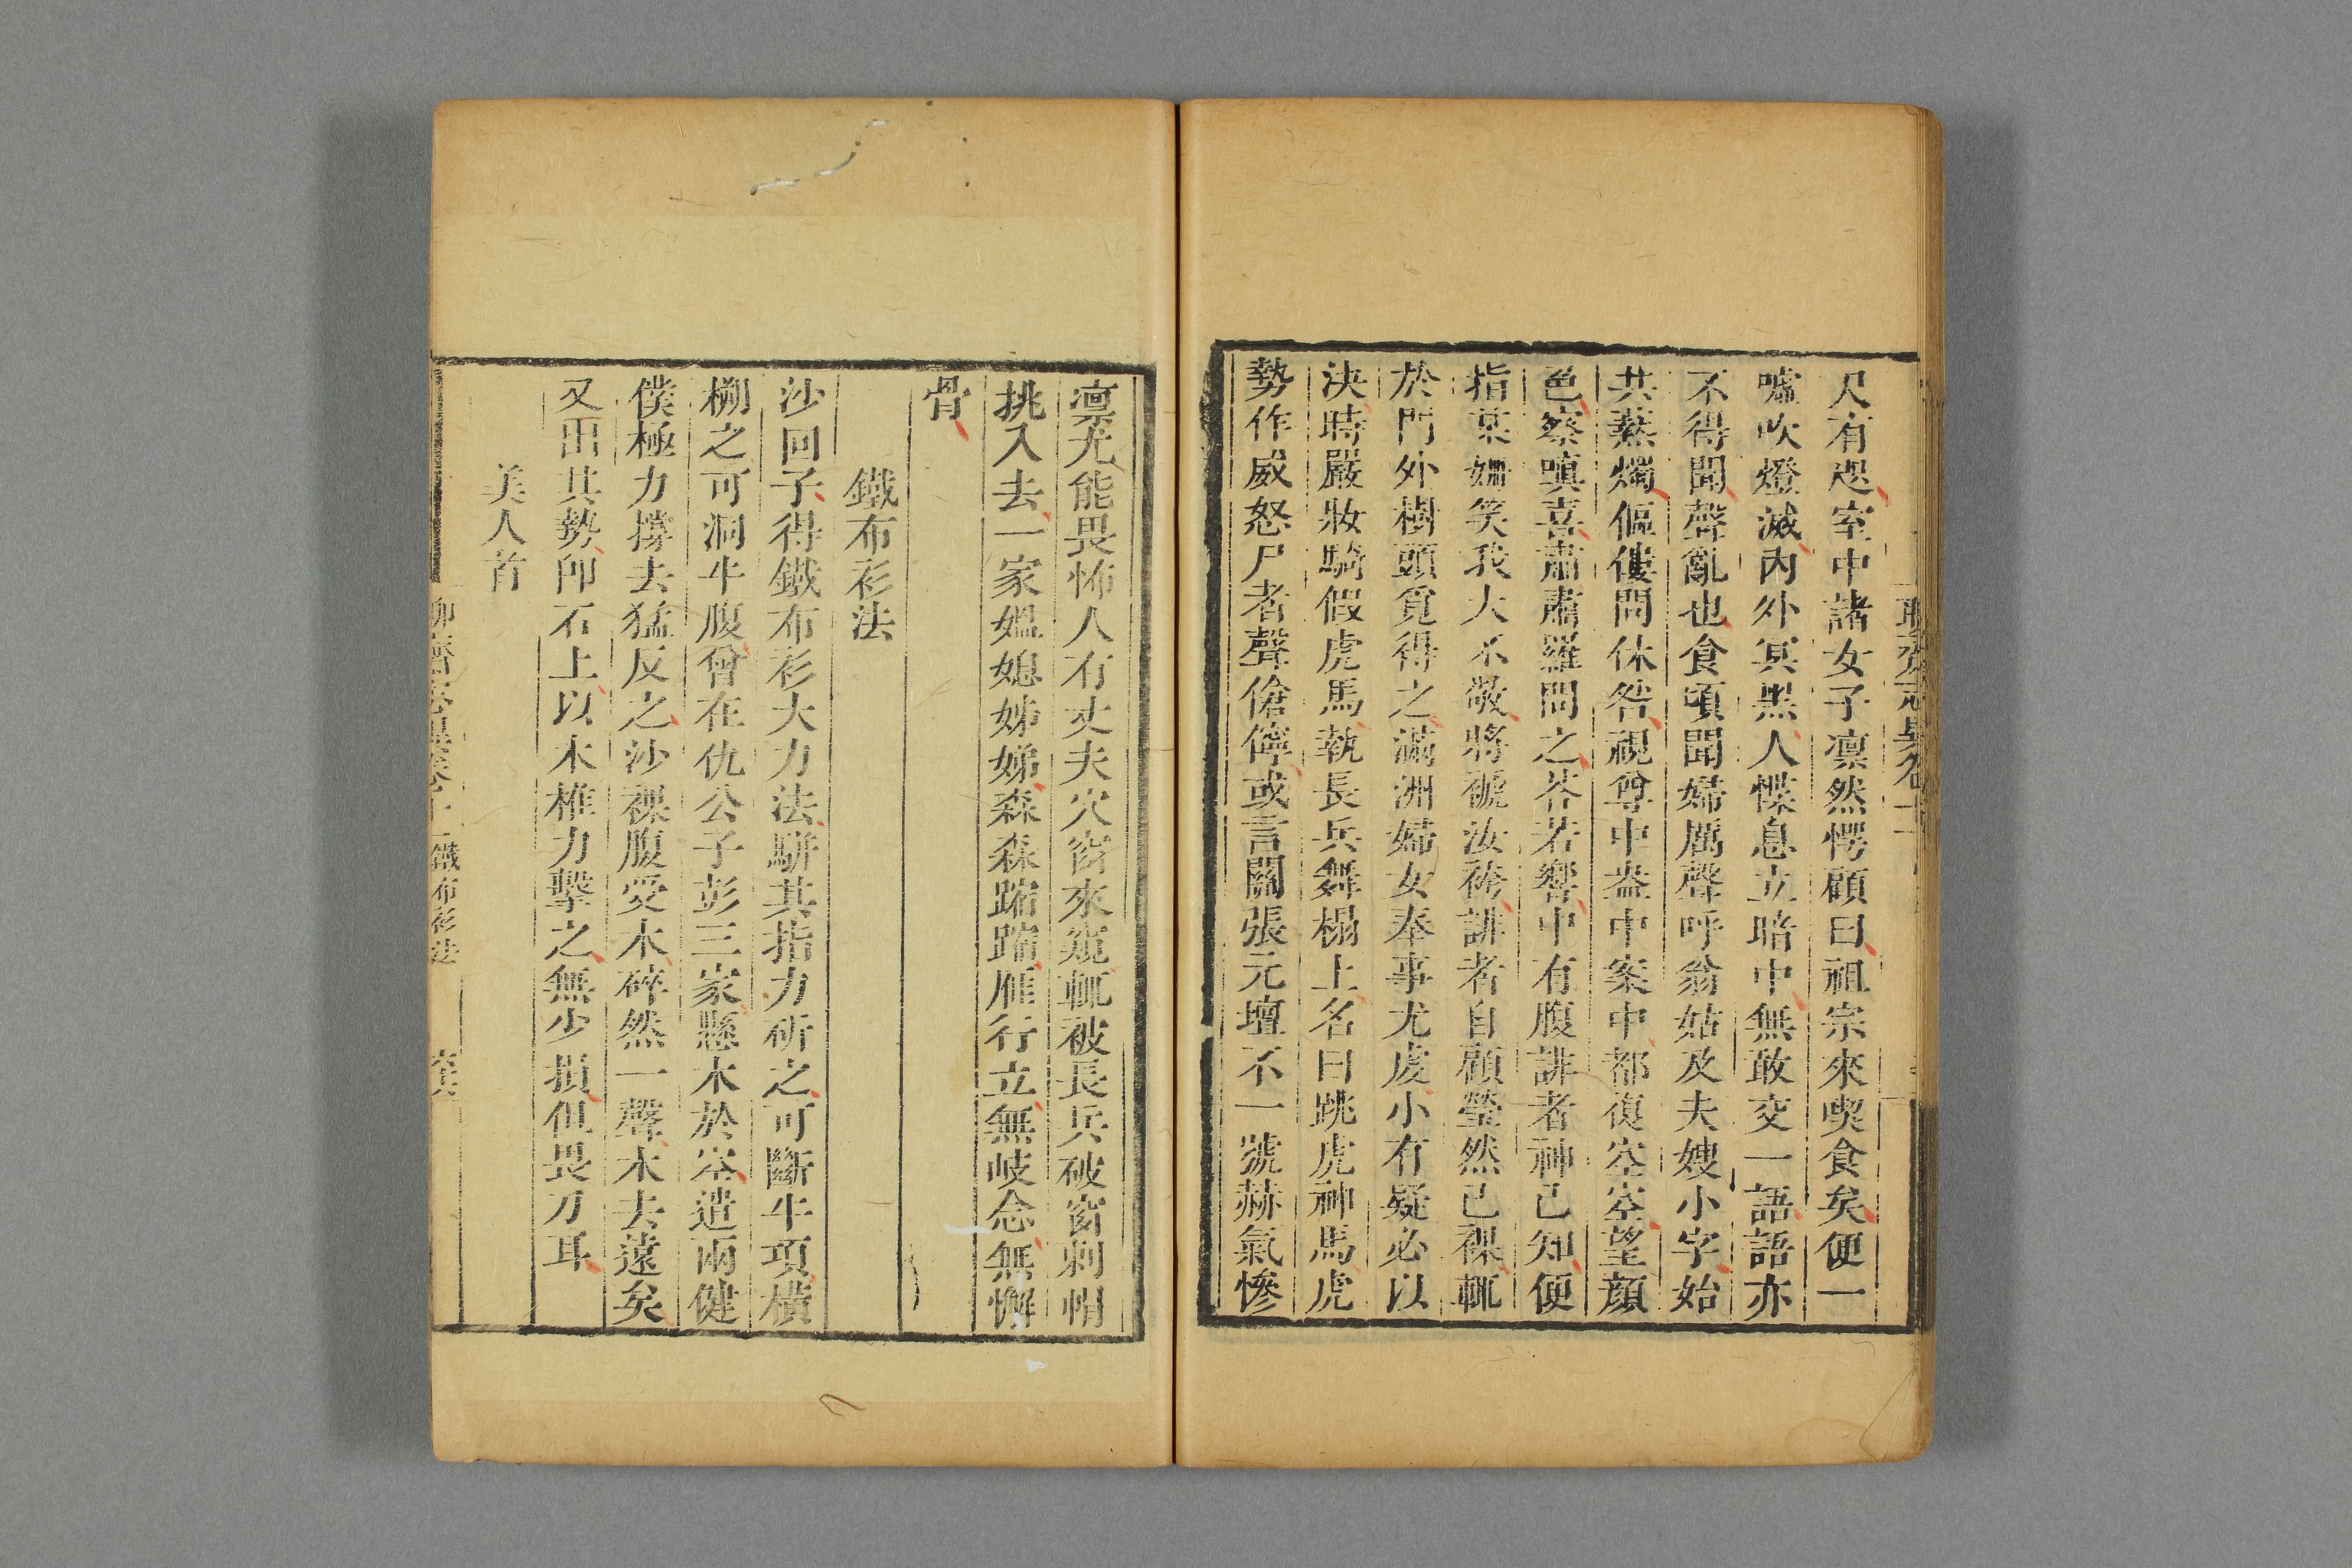 尺有咫室中諸女子凛然愕顧曰祖宗來喫食矣便一
噓吹燈滅內外冥黑人惵息立暗中無敢交一語語亦
不得聞聲亂也食頃聞婦厲聲呼翁姑及夫嫂小字始
共爇燭傴僂問休咎視尊中盎中案中都復空空望顏
色察嗔喜肅肅羅問之荅若響中有腹誹者神已知便
指某姍笑我大不敬將褫汝袴誹者自顧瑩然已裸輒
於門外樹頭覓得之滿洲婦女奉事尤虔小有疑必以
決時嚴妝騎假虎馬執長兵舞榻上名曰跳虎神馬虎
勢作威怒尸者聲傖儜或言關張元壇不一號赫氣慘
凛尤能畏怖人有丈夫穴窗來窺輒被長兵破窗刺帽
挑入去一家媼媳姊娣森森蹜蹜雁行立無岐念無懈
骨
鐵布衫法
沙回子得鐵布衫大力法駢其指力斫之可斷牛項橫
搠之可洞牛腹曾在仇公子彭三家懸木於空遣兩健
僕極力撐去猛反之沙裸腹受木砰然一聲木去遠矣
又出其勢卽石上以木椎力擊之無少損但畏刀耳
美人首
鐵布衫法